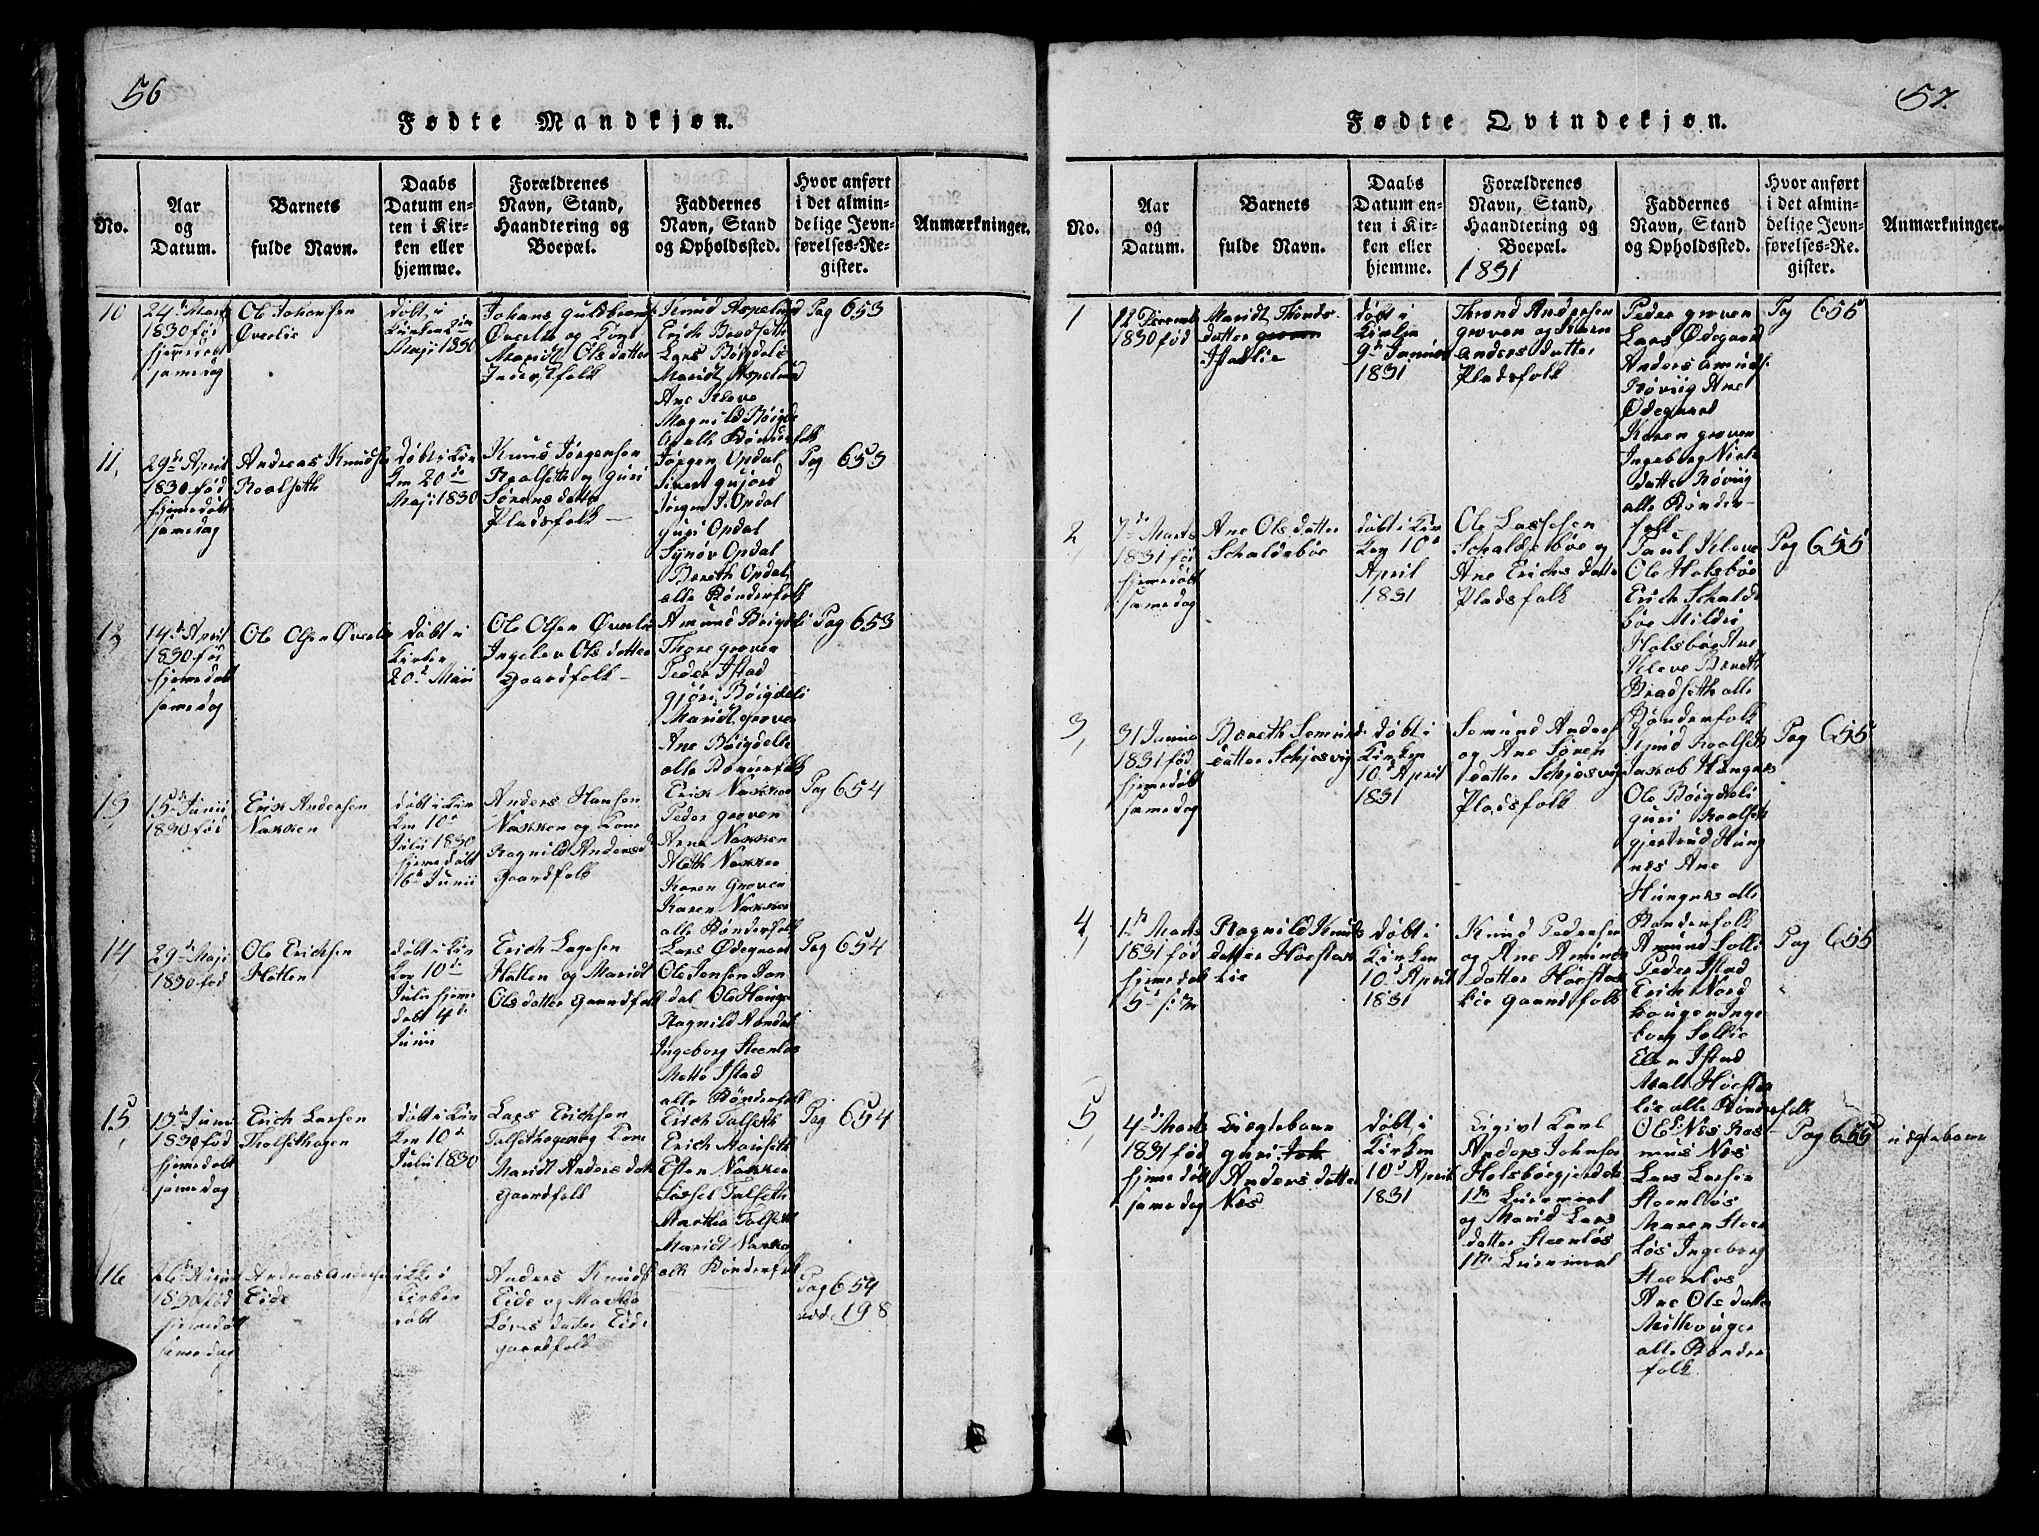 56
Fødte Mandkjøn.
No.
Aar
og
Datum.
Barnets
fulde Navn.
Daabs
Datum en-
ten i Kir-
ken eller
hjemme.
Forældrenes
Navn, Stand,
Haandtering og
Boepæl.
Faddernes
Navn, Stand
og Opholdssted.
Hvor anført
i det almin-
delige Jevn-
førelses-Re-
gister.
Anmærkninger.
10
24de Marts
1830 fød
hjemedøbt
samedag
Ole Johansen
Øverlie
døbt i
Kirken
Maji 1830
Johans Guldbrands
Øverlie og Kone
Maridt Olsdatter
Inderstfolk
Knud Aspelund
Erich Bradseth
Lars Bøigdeli
Maridt Aspelund
Ane Kleve
Magnild Bøigde
alle Bønderfolk
Pag 653
11,
29de April
1830 fød
hjemedøbt
samedag
Andreas Knudsen
Roalseth
døbt i Kir
ken 20de
Maji 1830
Knud Jørgensen
Roalseth og Guri
Sørensdatter
Pladsfolk
Jørgen Opdal
Sivert Gujord
Jørgen J. Opdal
Guri Opdal
Synøv Opdal
Bereth Opdal
alle Bønderfolk
Pag 653
12,
14de April
1830 fød
hjemedøbt
samedag
Ole Olsen Øverlie
døbt i
Kirken
20de Maii
Ole Olsen Øverlie
Ingelev Olsdatter
Gaardfolk
Amund Bøigdeli
Thore Groven
Peder Istad
Gjøri Bøigdeli
Maridt Groven
Ane Bøigdeli
alle Bønderfolk
Pag 653
13,
15de Junii
1830 fød
Erik Andersen
Nakken
døbt i Kir
ken 10de
Julii 1830
hjemedøbt
16de Junii
Anders Hansen
Nakken og Kone
Ragnild Andersd
Gaardfolk
Erik Nakken
Peder Groven
Arne Nakken
Aleth Nakken
Karen Groven
Karen Nakken
alle Bønderfolk
Pag 654
14
29de Maji
1830 fød
Ole Erichsen
Hatlen
døbt i Kir
ken 10de
Julii hjeme
døbt 4de
Junii
Erich Larsen
Hatlen og Maridt
Olsdatter Gaardfolk
Lars Ødegaard
Ole Jensen Aan
dal Ole Hauge
Ragnild Aandal
Ingeborg Steenløs
Mette Istad
alle Bønderfolk
Pag 654
15,
13de Junii
1830 fød
hjemedøbt
samedag
Erich Larsen
Thalsethagen
døbt i Kir
ken 10de
Julii 1830
Lars Erichsen
Talsethagen og Kone
Maridt Andersdat
Gaardfolk
Erich Talseth
Erich Mauseth
Esten Nakken
Sissel Talseth
Martha Talseth
Maridt Nakken
alle Bønderfolk
Pag 654
16
26de
1830 fød
hjemedøbt
samedag
Andreas Andersen
Eide
ikke i
Kirken
døbt
Anders Knuds
Eide og Martha
Larsdatter Eide
Gaardfolk
Pag 654
198
57.
Fødte Qvindekjøn.
No.
Aar
og
Datum.
Barnets
fulde Navn.
Daabs
Datum en-
ten i Kir-
ken eller
hjemme.
Forældrenes
Navn, Stand,
Haandtering og
Boepæl.
1831
Faddernes
Navn, Stand
og Opholdssted.
Hvor anført
i det almin-
delige Jevn-
førelses-Re-
gister.
Anmærkninger.
1
12 Decemb
1830 fød
Maridt Thronds
datter groven
Istadlie
døbt i
Kirken
9de Januar
1831
Thrond Andersen
groven og Karen
Andersdatter
Pladsfolk
Peder groven
Lars Ødegaard
Anders Amunds.
Røviig Ane
Ødegaard
Karen groven
Ingeborg Niels
datter Røviig
alle Bønder-
folk
Pag 655
2,
7de Marts
1831 fød
hjemedøbt
samedag
Ane Olsdatter
Schaldebøe
døbt i Kir
ken 10de
April
1831
Ole Lassesen
Schaldebøe og
Ane Erichsdatter
Pladsfolk
Paul Kleve
Ole Holsbøe
Erich Schalde
bøe Mildri
Holsbøe Ane
Kleve Bereth
Bradseth alle
Bønderfolk
Pag 655
3,
31 Januar
1831 fød
hjemedøbt
samedag
Bereth Semunds
datter Schjesvig
døbt i
Kirken
10de April
1831
Semund Anders
og Ane Søren
datter Schjesvig
Pladsfolk
Knud Roalseth
Jakob Hungnes
Ole Bøigdeli
Guri Roalseth
Gjertrud Hung
nes Ane
Hungnes alle
Bønderfolk
Pag 655
4,
1de Marts
1831 fød
hjemedøbt
5de s: M
Ragnild Knuds
datter Høestak
lie
døbt i
Kirken
10de April
1831
Knud Pedersen
og Ane Amunds
datter Høestak
lie Gaardfolk
Amund Sollie
Peder Istad
Erich Nord
hougen Inge
borg Sollie
Elen Istad
Malt Høestak
lie alle Bønderfolk
Pag 655
5,
4de Marts
1831 fød
hjemedøbt
samedag
Uægtebarn
Guri Joh
Andersdatter
Nes
døbt i
Kirken
10de April
1831
Ugivt Karl
Anders Johnsen
Holsbøegjerdet
1ste Leiermaal
og Marid Lars
datter Steenløs
1ste Leiermaal
Ole E Nes Ras
mus Nes
Lars Larsen
Steenløs
Maren Steen
løs Ingeborg
Steenløs
Ane Olsdatter
Mithouger
alle Bønder
folk
Pag 655
uægtebarn